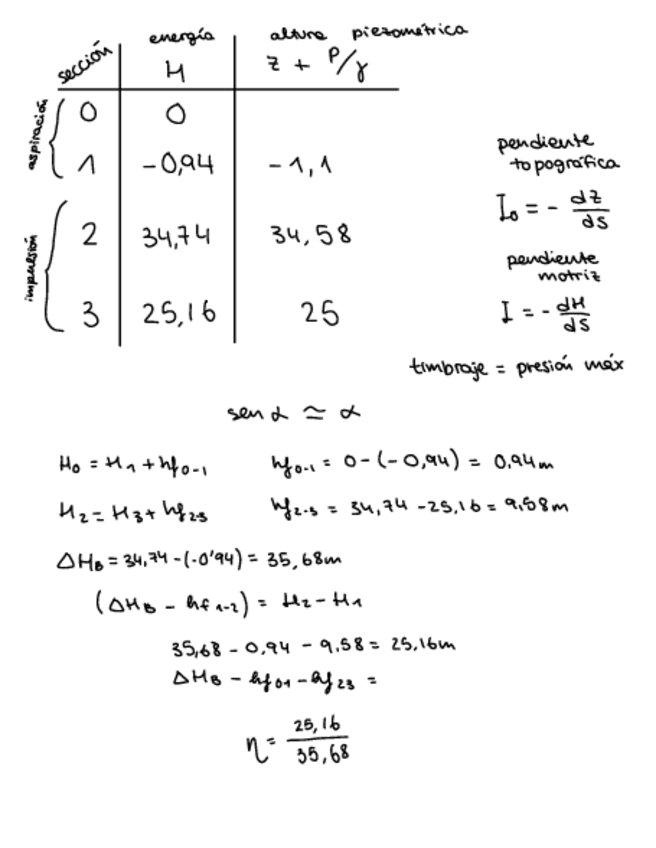 sección energía altura piezométrica
H z + P/γ
aspiración
0 0
1 -0,94 -1,1
impulsión
2 34,74 34,58
3 25,16 25
pendiente
topográfica
I₀ = - dz/ds
pendiente
motriz
I = - dH/ds
timbraje = presión máx
sen α ≃ α
H₀ = H₁ + hf₀₋₁ hf₀₋₁ = 0-(-0,94) = 0,94m
H₂ = H₃ + hf₂₃ hf₂₋₃ = 34,74 -25,16 = 9,58m
ΔH_B = 34,74 -(-0'94) = 35,68m
(ΔH_B - hf₁₋₂) = H₂ - H₁
35,68 - 0,94 - 9,58 = 25,16m
ΔH_B - hf₀₁ - hf₂₃ =
η = 25,16/35,68